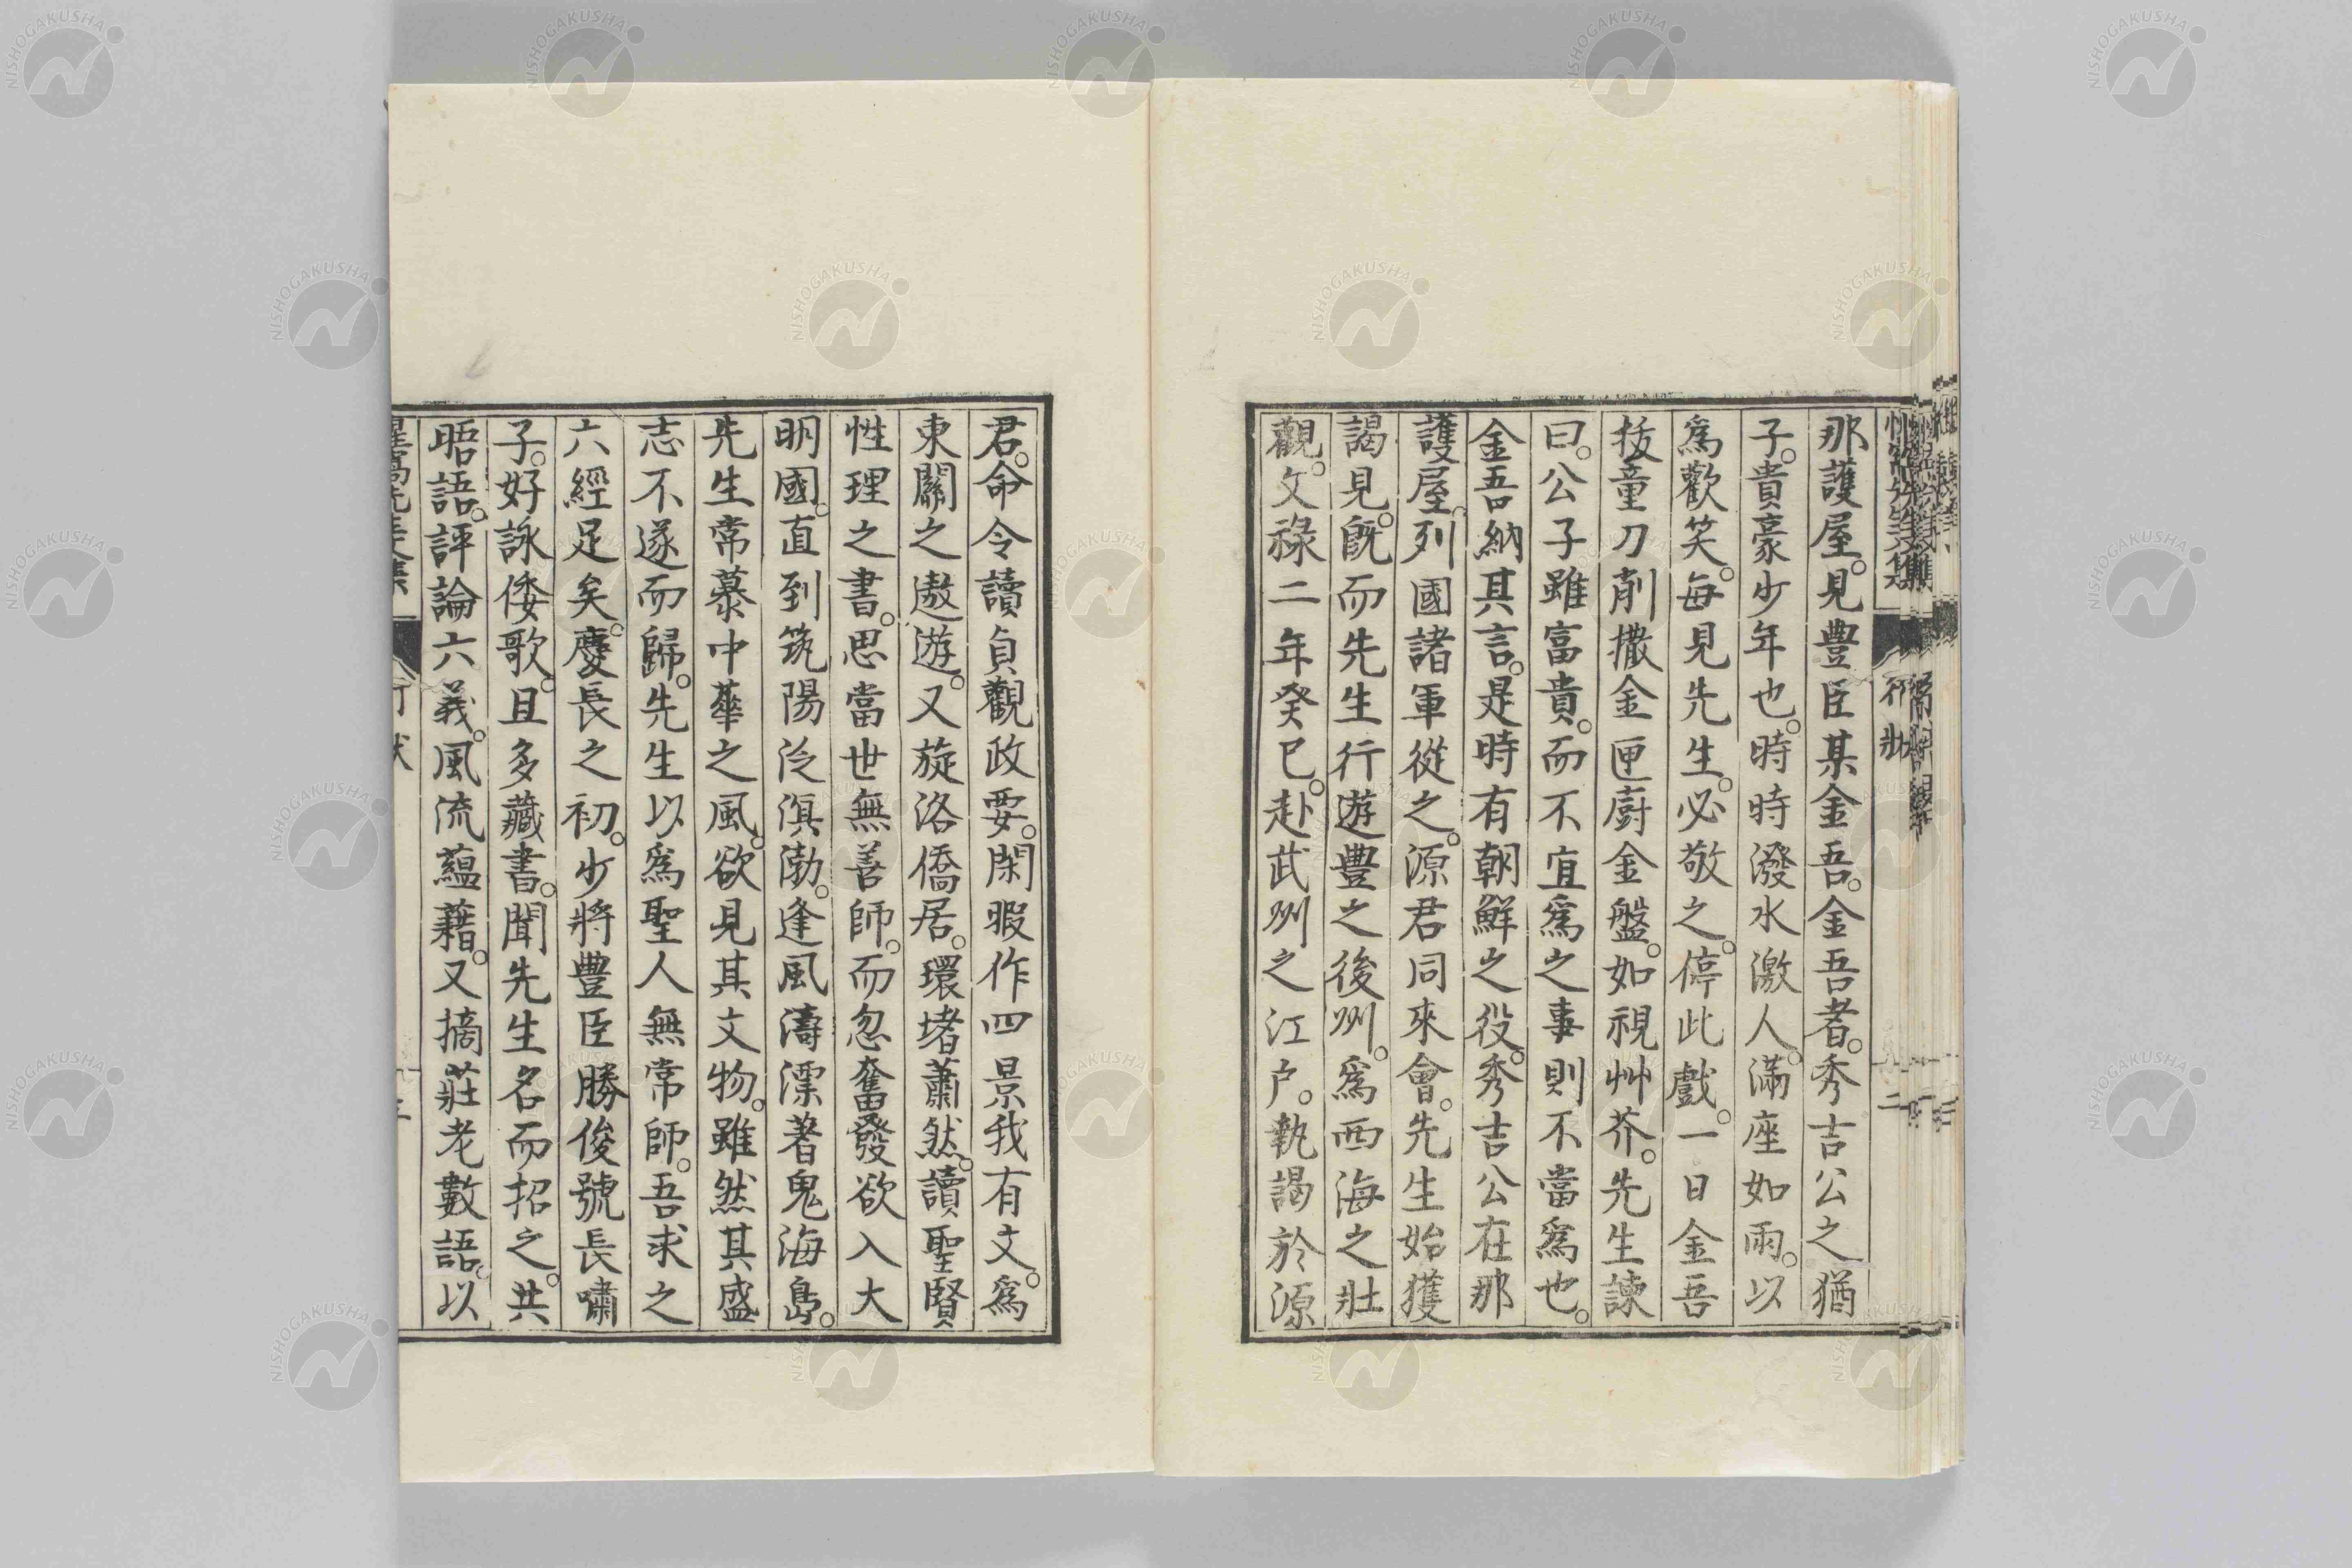 那護屋。見豊臣某金吾。金吾者。秀吉公之猶
子。貴豪少年也。時時潑水激人。滿座如雨。以
爲歡笑。每見先生。必敬之。停此戲。一日金吾
拔童刀削撒金匣廚金盤。如視艸芥。先生諫
曰。公子雖富貴。而不宜爲之事則不當爲也。
金吾納其言。是時有朝鮮之役。秀吉公在那
護屋。列國諸軍從之。源君同來會。先生始獲
謁見。旣而先生行遊豊之後州。爲西海之壯
觀。文祿二年癸巳。赴武州之江戶。執謁於源
君。命令讀貞觀政要。閑暇作四景我有文。爲
東關之遨遊。又旋洛僑居。環堵蕭然。讀聖賢
性理之書。思當世無善師。而忽奮發欲入大
明國。直到筑陽泛溟渤。逢風濤漂著鬼海島。
先生常慕中華之風。欲見其文物。雖然其盛
志不遂而歸。先生以爲聖人無常師。吾求之
六經足矣。慶長之初。少將豊臣勝俊號長嘯
子。好詠倭歌。且多藏書。聞先生名而招之。共
晤語。評論六義。風流蘊藉。又摘莊老數語。以
行狀
二
NISHOGAKUSHA